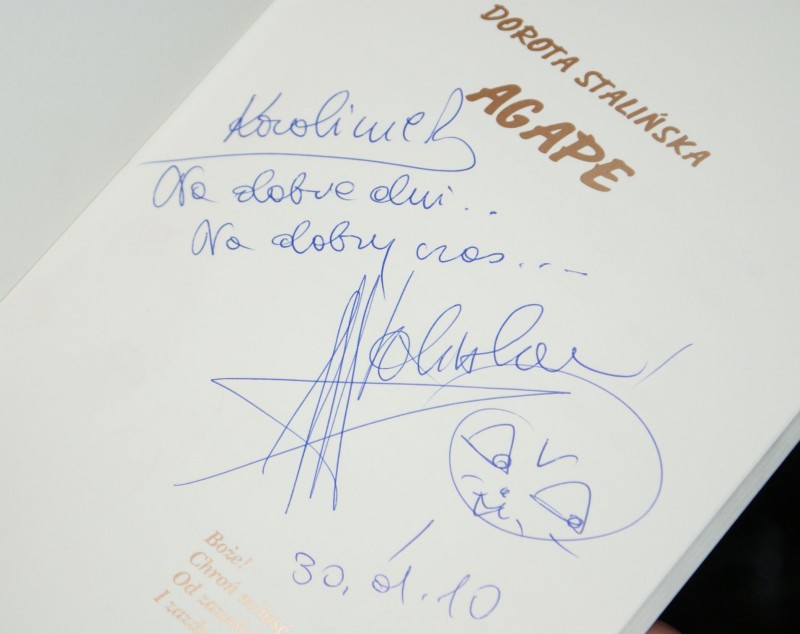 DOROTA STALIŃSKA
AGAPE
Karolince
Na dobre dni...
Na dobry czas...
30.01.10
Boże!
Chroń
Od
I